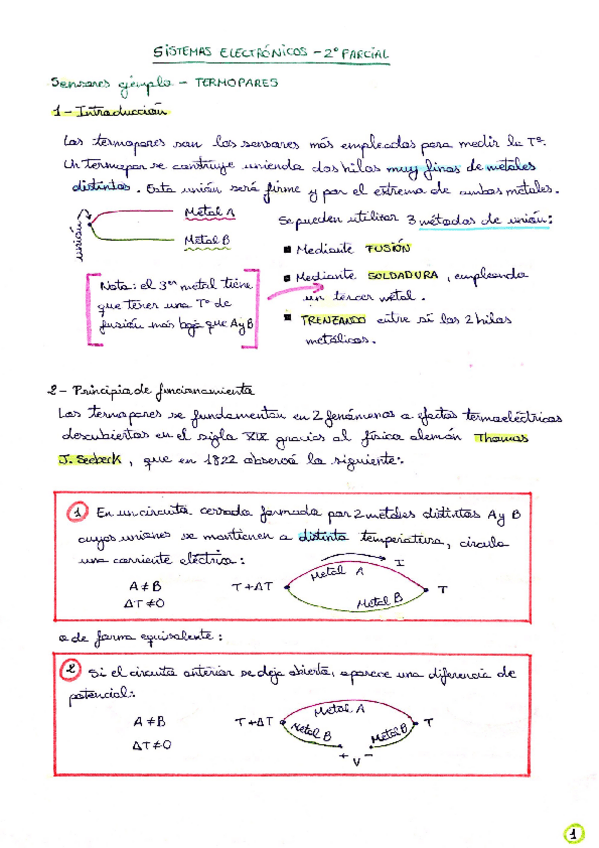 SISTEMAS ELECTRÓNICOS - 2º PARCIAL
Sensores ejemplo - TERMOPARES
1 - Introducción
Los termopares son los sensores más empleados para medir la Tº.
Un termopar se construye uniendo dos hilos muy finos de metales
distintos. Esta unión será firme y por el extremo de ambos metales.
unión
Metal A
Metal B
Nota: el 3er metal tiene
que tener una Tº de
fusión más baja que A y B
Se pueden utilizar 3 métodos de unión:
■ Mediante FUSIÓN
■ Mediante SOLDADURA, empleando
un tercer metal.
■ TRENZANDO entre sí los 2 hilos
metálicos.
2 - Principio de funcionamiento
Los termopares se fundamentan en 2 fenómenos o efectos termoeléctricos
descubiertos en el siglo XIX gracias al físico alemán Thomas
J. Seebeck, que en 1822 observó lo siguiente:
1 En un circuito cerrado formado por 2 metales distintos A y B
cuyas uniones se mantienen a distinta temperatura, circula
una corriente eléctrica:
A ≠ B
ΔT ≠ 0
T + ΔT
Metal A
I
Metal B
T
o de forma equivalente:
2 Si el circuito anterior se deja abierto, aparece una diferencia de
potencial:
A ≠ B
ΔT ≠ 0
T + ΔT
Metal A
T
Metal B
Metal B
+ V -
1